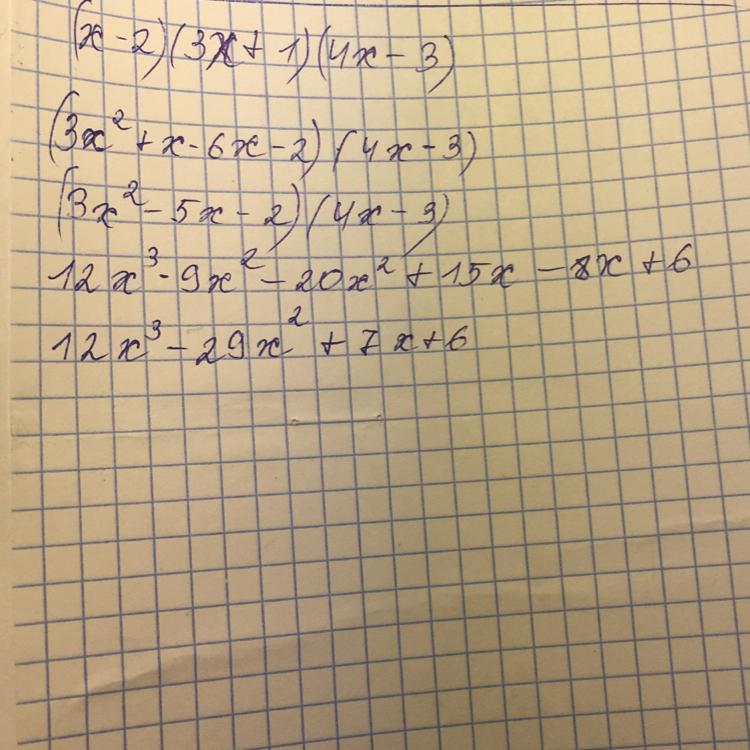 (x-2)(3x+1)(4x-3)
(3x²+x-6x-2)(4x-3)
(3x²-5x-2)(4x-3)
12x³-9x²-20x²+15x-8x+6
12x³-29x²+7x+6